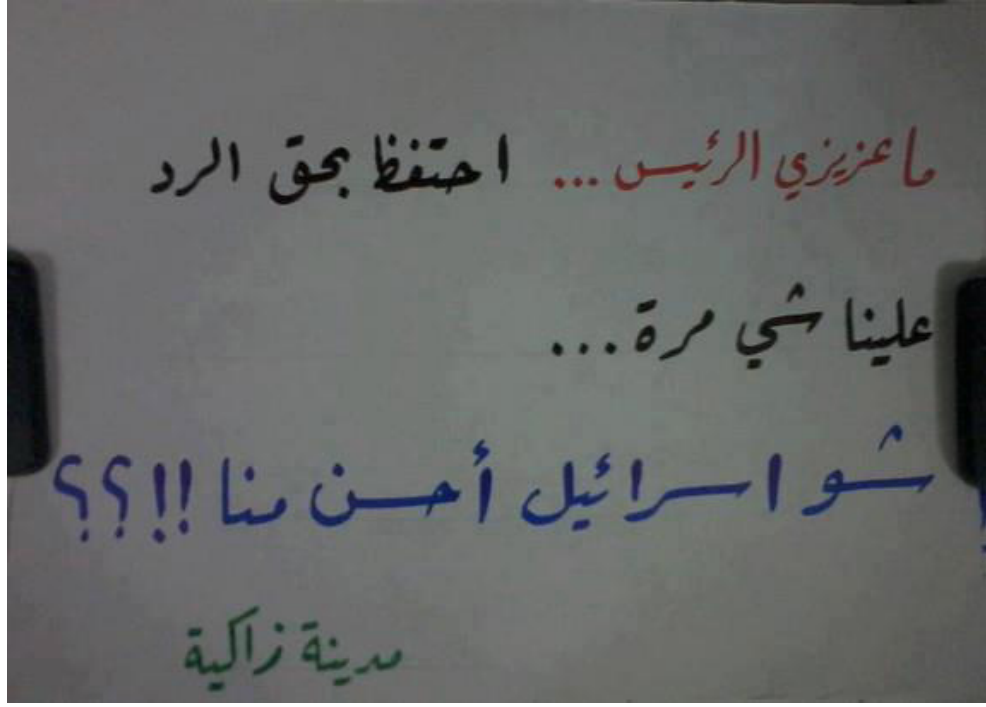 ما عزيزي الرئيس... احتفظ بحق الرد
علينا شي مرة...
شو اسرائيل أحسن منا !!؟؟
مدينة زاكية